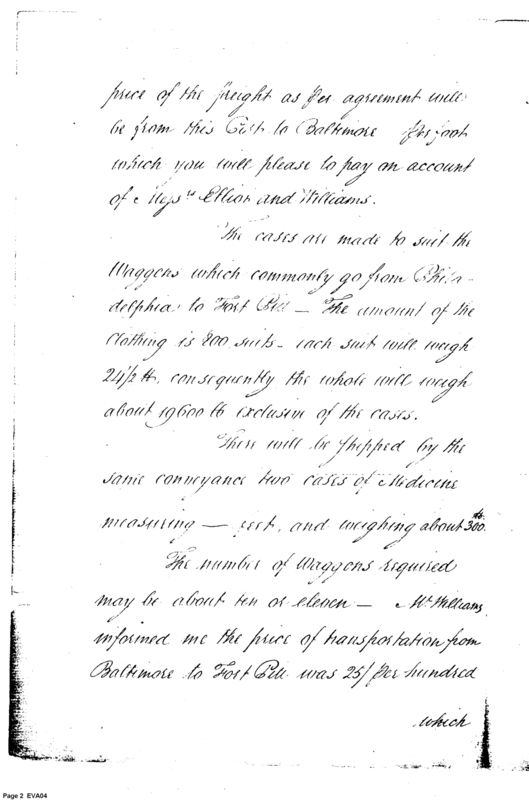 price of the freight as per agreement will
be from this Port to Baltimore per foot
which you will please to pay on account
of Messrs Elliot and Williams.
The cases are made to suit the
Waggons which commonly go from Phila-
delphia to Fort Pitt — The amount of the
Clothing is 800 suits - each suit will weigh
24½ lb, consequently the whole will weigh
about 19600 lb exclusive of the cases.
There will be shipped by the
same conveyance two cases of Medicine
measuring — feet, and weighing about 300 lb.
The number of Waggons required
may be about ten or eleven — Mr Williams
informed me the price of transportation from
Baltimore to Fort Pitt was 25/ per hundred
which
Page 2 EVA04